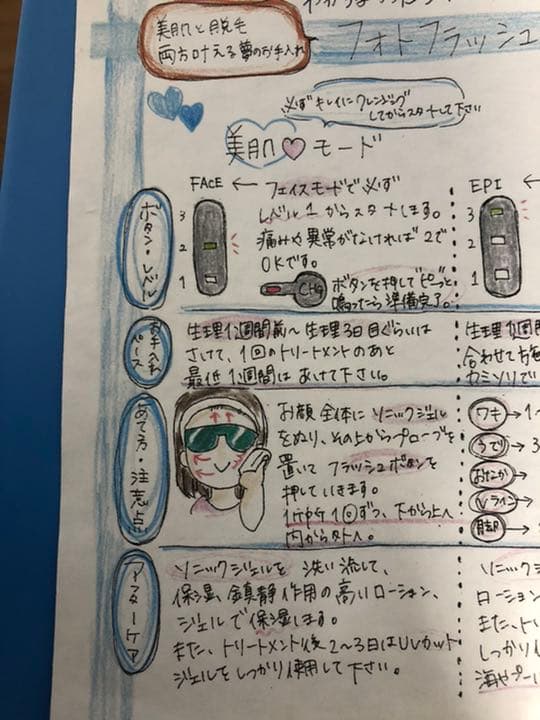 美肌と脱毛
両方叶える夢のお手入れ
フォトフラッシュ
必ずキレイにクレンジング
してからスタートして下さい
美肌♥モード
ボタン・レベル
FACE ←
3
2
1
フェイスモードで必ず
レベル1からスタートします。
痛みや異常がなければ2で
OKです。
CHG
ボタンを押して"ピーッ"と
鳴ったら準備完了。
EPI ←
3
2
1
お手入れペース
生理1週間前〜生理3日目ぐらいは
さけて、1回のトリートメントのあと
最低1週間はあけて下さい。
生理1週間
合わせてお毎
カミソリで
あて方・注意点
お顔全体にソニックジェル
をぬり、その上からプローブを
置いてフラッシュボタンを
押していきます。
1ヶ所1回ずつ、下から上へ
内から外へ。
ワキ→1〜
うで→3
おなか→
Vライン→
脚→
アフターケア
ソニックジェルを洗い流して、
保湿、鎮静作用の高いローション、
ジェルで保湿します。
また、トリートメント後2〜3日はUVカット
ジェルをしっかり使用して下さい。
ソニックジ
ローション
また、ト
しっかり
海やプー